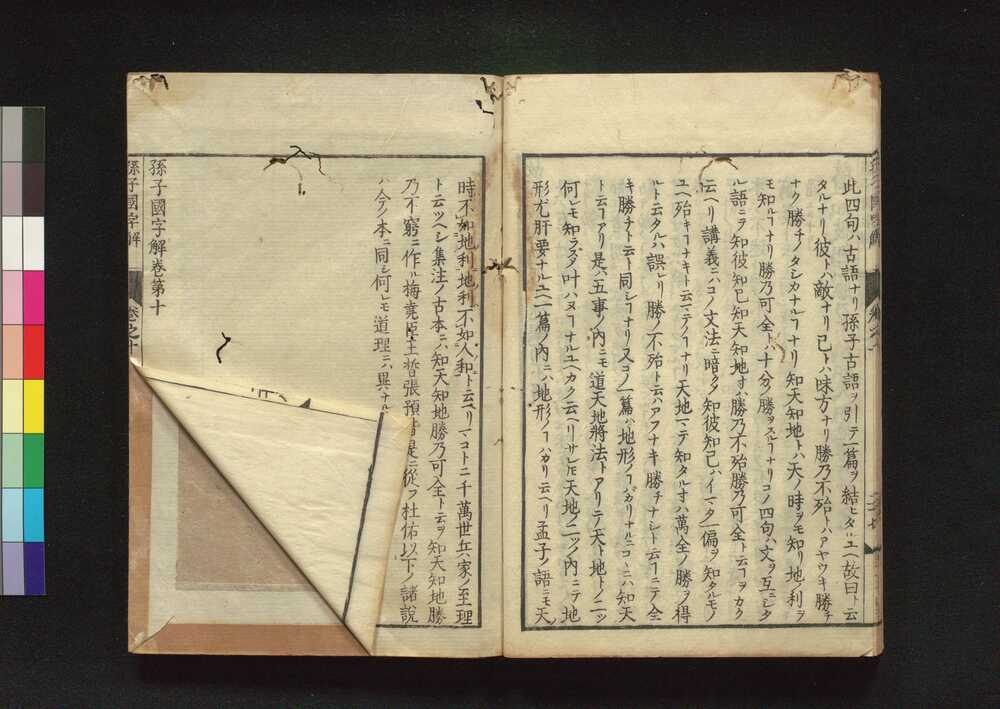 此四句ハ古語ナリ孫子古語ヲ引テ一篇ヲ結ヒタルユヘ故曰ト云
タルナリ彼トハ敵ナリ己トハ味方ナリ勝乃不殆トハアヤウキ勝チ
ナク勝チノタシカナルヿナリ知天知地トハ天ノ時ヲモ知リ地ノ利ヲ
モ知ルヿナリ勝乃可全トハ十分ノ勝ヲスルヿナリコノ四句ハ文ヲ互ニシタ
ル語ニテ知彼知己知天知地寸ハ勝乃不殆勝乃可全ト云フヿヲカク
云ヘリ講義ニハコノ文法ニ暗クメ知彼知己ハイマタ一偏ヲ知タルモノ
ユヘ殆キヿナキト云マテノヿナリ天地マテ知タル寸ハ萬全ノ勝ヲ得
ルト云タルハ誤レリ勝ノ不殆ト云ハアフナキ勝チナシト云ヿニテ全
キ勝チト云ト同シヿナリ又コノ一篇ハ地形ノヿバカリナルニコヽニハ知天
ト云ヿアリ是ハ五事ノ内ニモ道天地將法トアリテ天ト地トノ二ツ
何レモ知ラズメ叶ハヌヿナルユヘカク云ヘリサレモ天地ノ二ツノ内ニテ地
形尤肝要ナルユヘ一篇ノ内ニハ地形ノヿハカリ云ヘリ孟子ノ語ニモ天
時不如地利地利不如人和ト云ヘリマコトニ千萬世兵家ノ至理
ト云ツヘシ集注ノ古本ニハ知天知地勝乃可全ト云ヲ知天知地勝
乃不窮ニ作ル梅堯臣王晳張預皆是ニ從フ杜佑以下ノ諸説
ハ今ノ本ニ同シ何レモ道理ニハ異ナル
孫子國字解卷第十
孫子國字解
卷之十